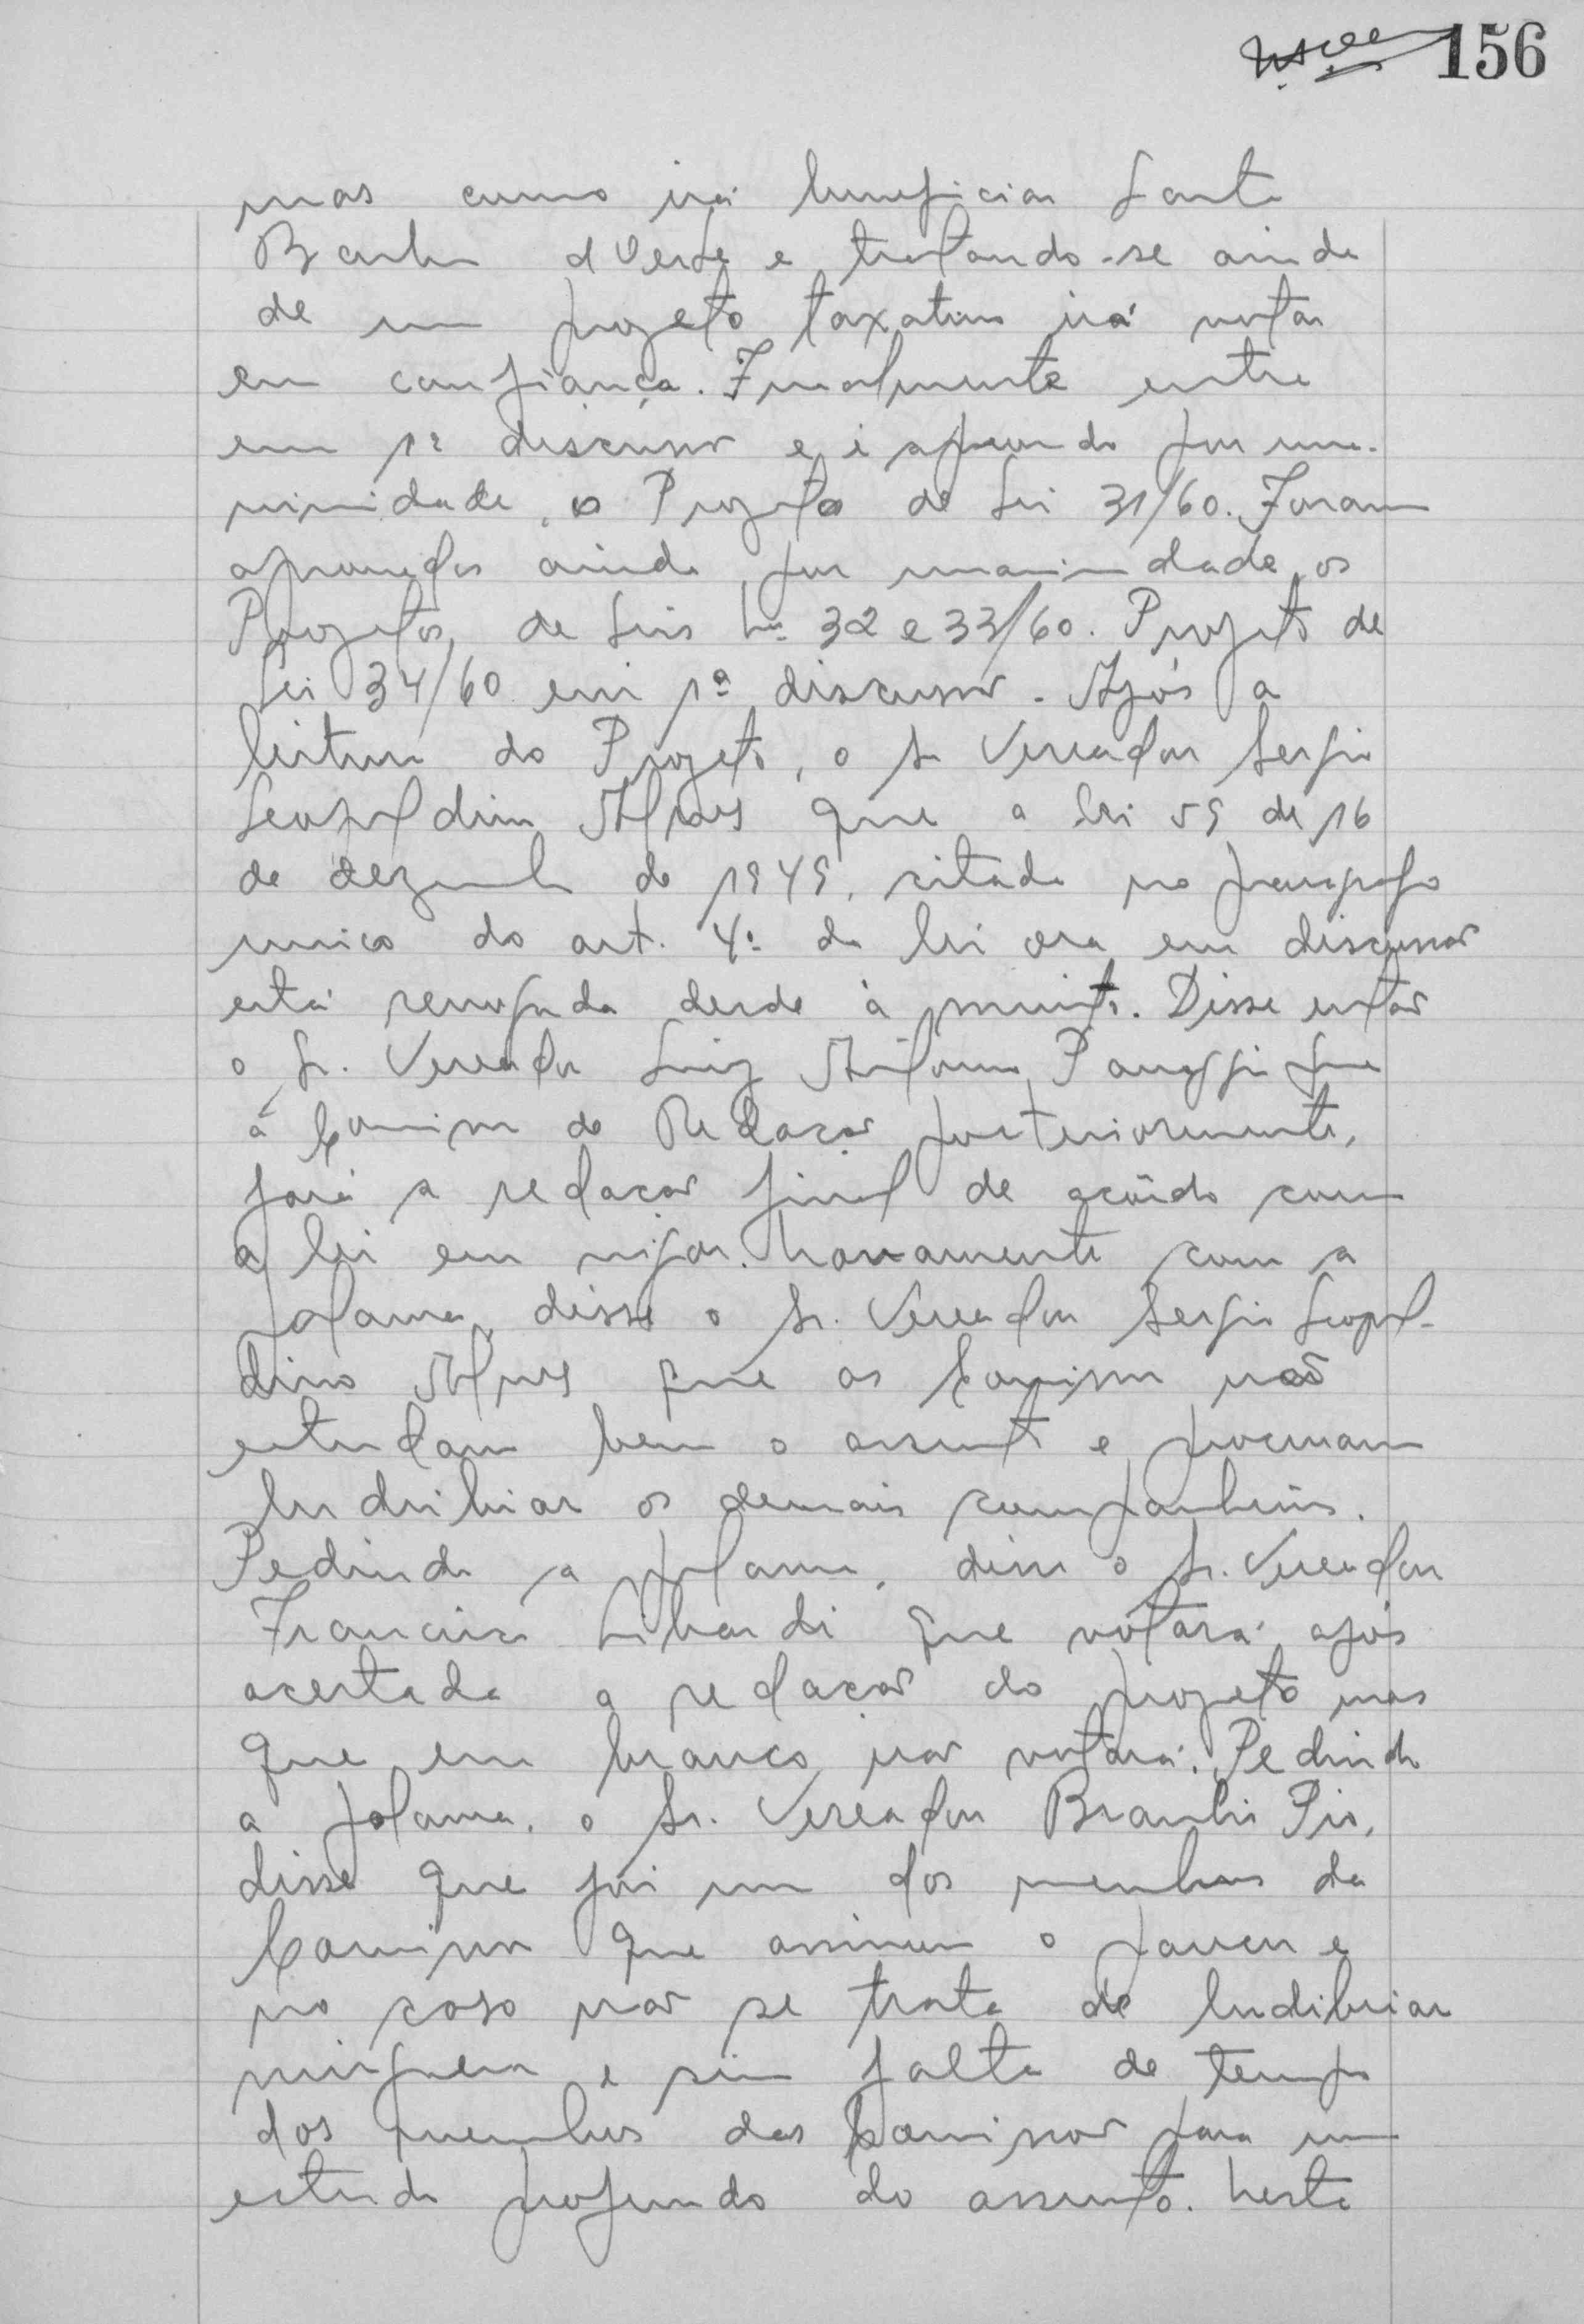 156
mas como irá beneficiar Santa
Barba d'Oeste e tratando-se ainda
de um projeto taxativo irá votar
em confiança. Finalmente entra
em 1ª discussão e é aprovado por una-
nimidade, o Projeto de Lei 31/60. Foram
aprovados ainda por unanimidade, os
Projetos de Leis Nº 32 e 33/60. Projeto de
Lei 34/60 em 1ª discussão. Após a
leitura do Projeto, o Sr Vereador Sergio
Leopoldino Alves que a lei 59 de 16
de dezembro de 1949, citada no paragrafo
unico do art. 4º da lei ora em discussão
está revogada desde à muito. Disse então
o Sr. Vereador Luiz Antonio Panaggio que
á Comissão de Redação posteriormente,
fará a redação final de acôrdo com
a lei em vigor. Novamente com a
palavra, disse o Sr. Vereador Sergio Leopol-
dino Alves que as Comissão não
estudam bem o assunto e procuram
ludribiar os demais companheiros.
Pedindo a palavra, disse o Sr. Vereador
Francisco Libardi que votará após
acertada a redação do projeto mas
que em branco não votará. Pedindo
a palavra, o Sr. Vereador Braulio Pio,
disse que foi um dos membros da
Comissão que assinou o parecer e
no caso não se trata de ludibriar
ninguem e sim falta de tempo
dos membros das Comissão para um
estudo profundo do assunto. Nesta